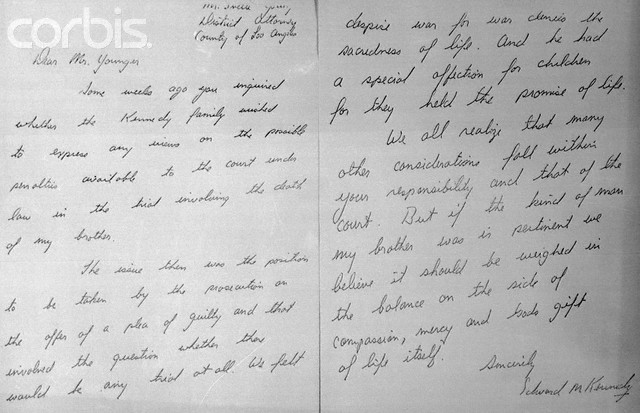 corbis.
District Attorney
County of Los Angeles
Dear Mr. Younger
Some weeks ago you inquired
whether the Kennedy family wished
to express any views on the possible
penalties available to the court under
law in the trial involving the death
of my brother.
The issue then was the position
to be taken by the prosecution on
the offer of a plea of guilty and that
involved the question whether there
would be any trial at all. We felt
despise war for war denies the
sacredness of life. And he had
a special affection for children
for they held the promise of life.
We all realize that many
other considerations fall within
your responsibility and that of the
court. But if the kind of man
my brother was is pertinent we
believe it should be weighed in
the balance on the side of
compassion, mercy and Gods gift
of life itself.
Sincerely
Edward M Kennedy